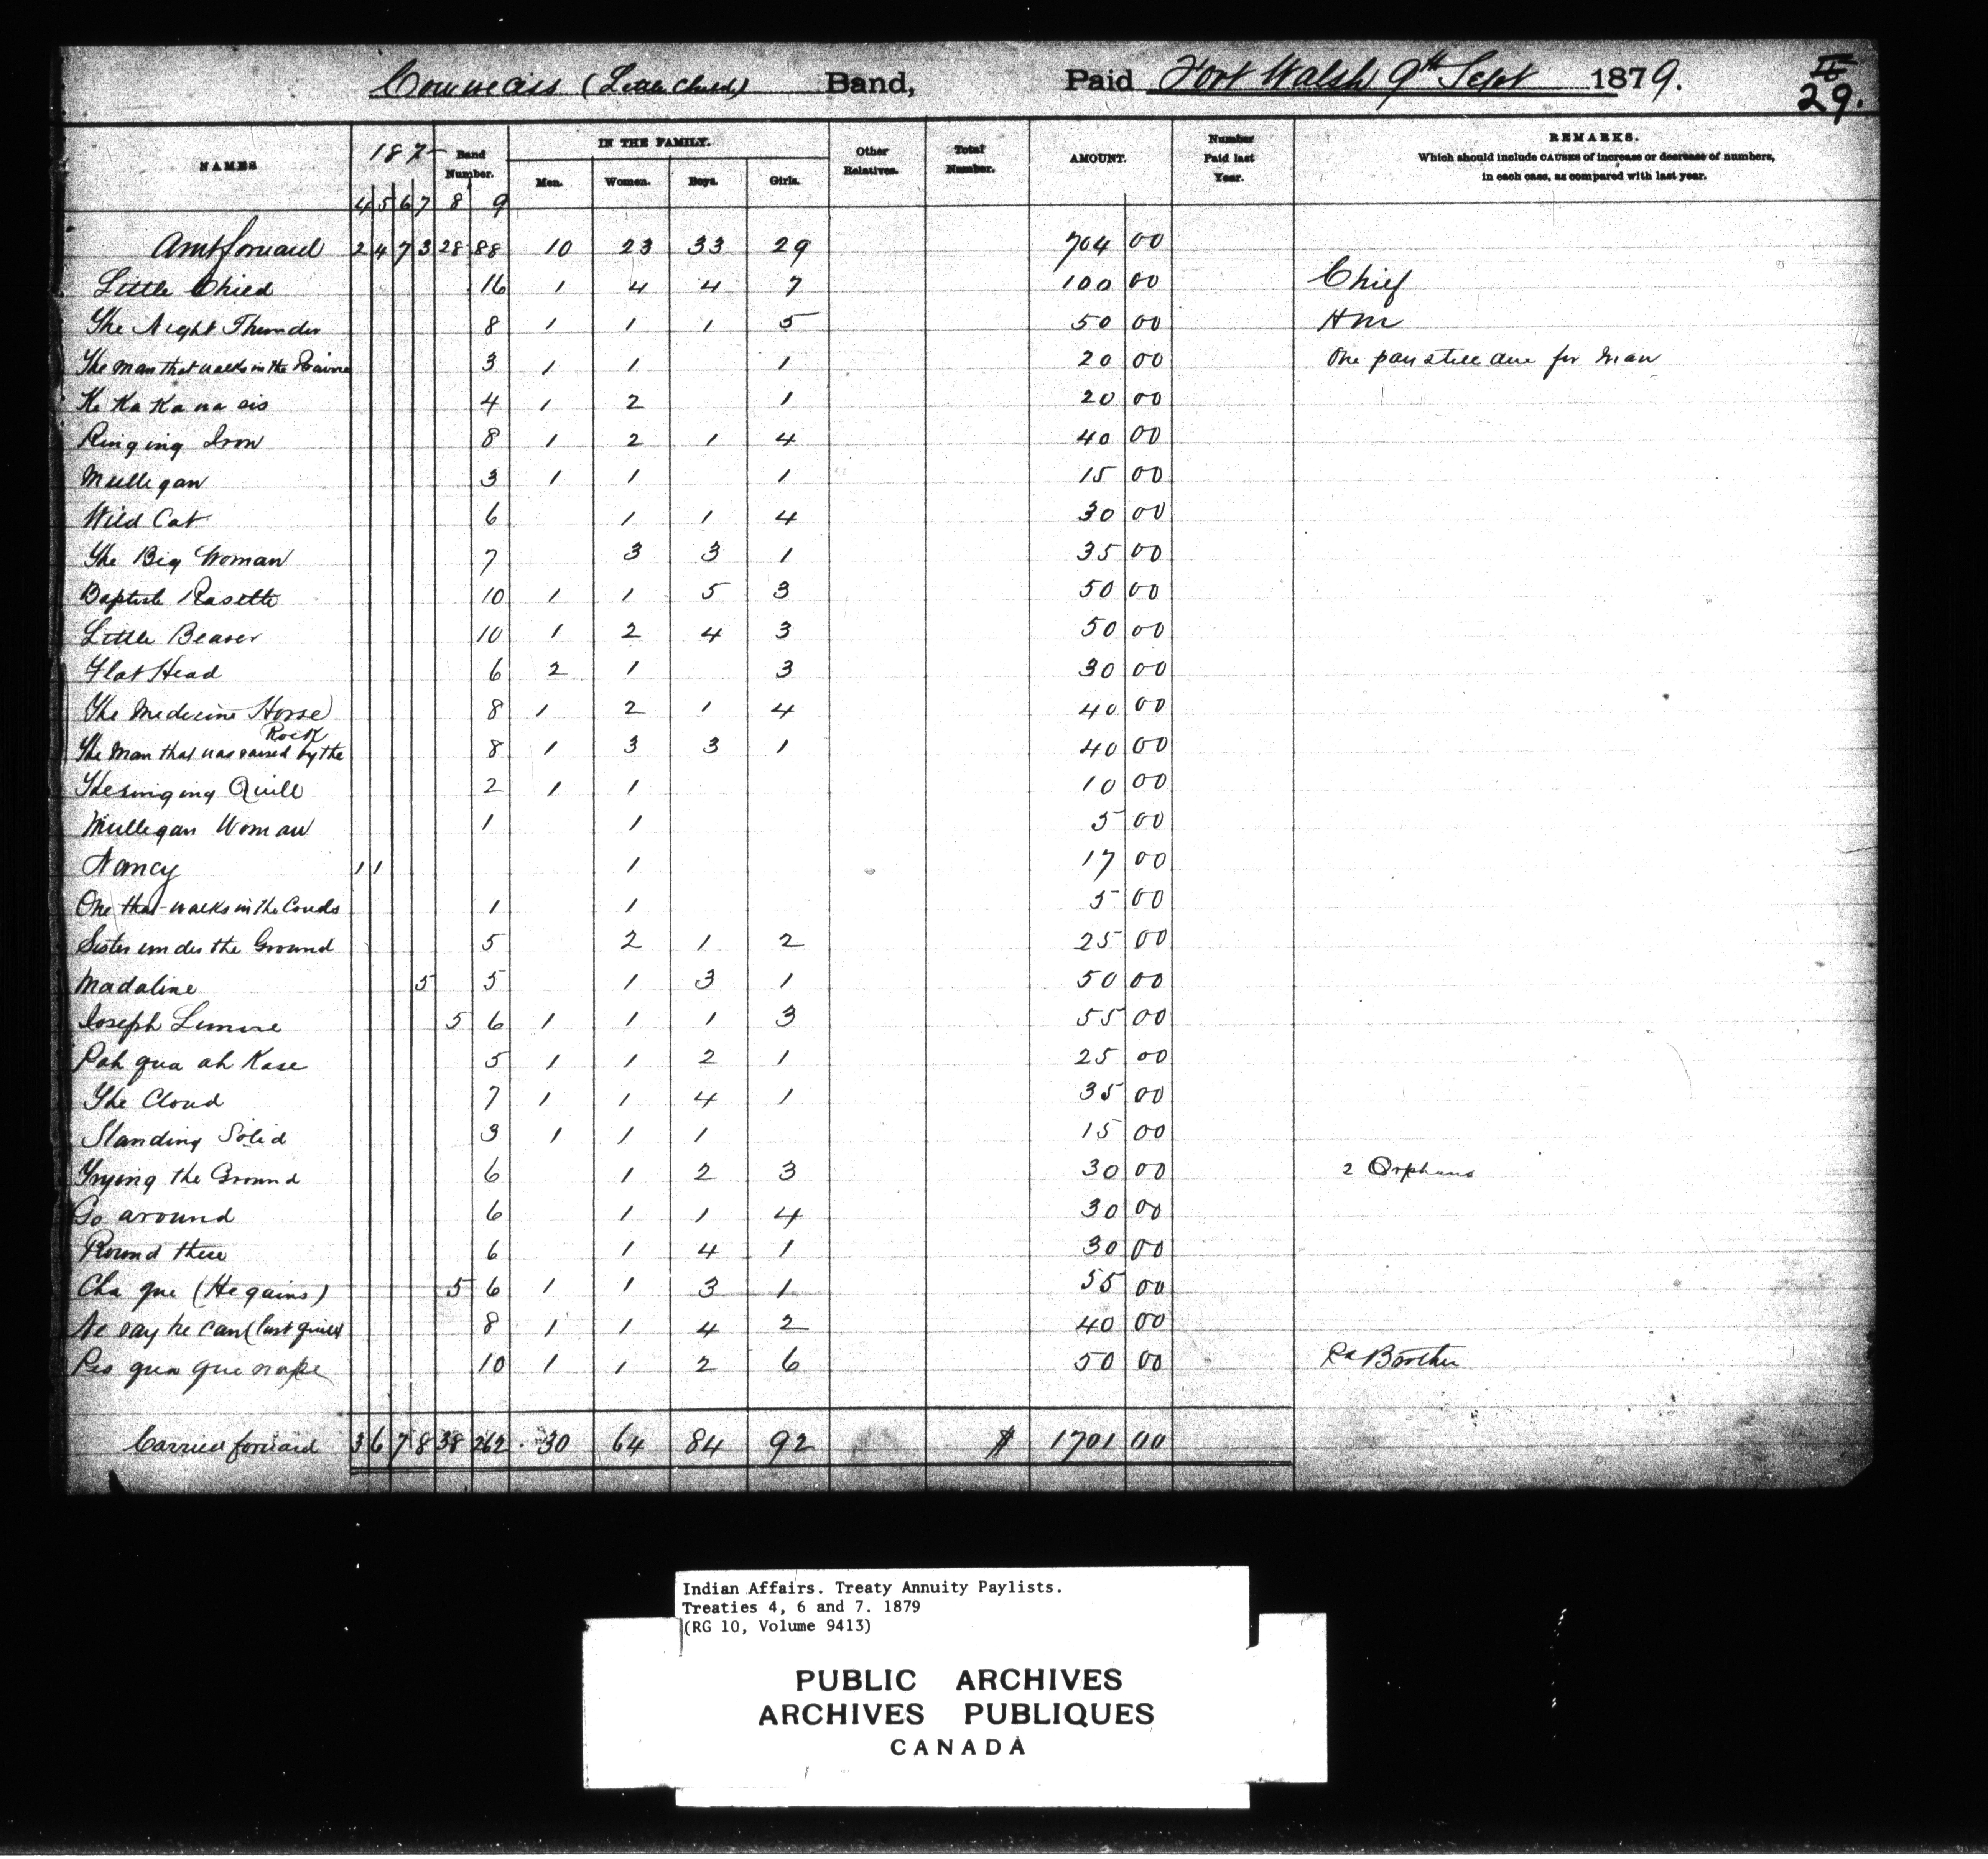 Cowwecis (Little Child) Band, Paid Fort Walsh 9th Sept 1879.
29.
NAMES 187- Band Number. IN THE FAMILY. Other Relatives. Total Number. AMOUNT. Number Paid last Year. REMARKS.
Which should include CAUSES of increase or decrease of numbers, in each case, as compared with last year.
4 5 6 7 8 9 Men. Women. Boys. Girls.
Amt forward 2 4 7 3 28 88 10 23 33 29 704 00
Little Child 16 1 4 4 7 100 00 Chief
The Night Thunder 8 1 1 1 5 50 00 Hm
The man that walks in the Prairie 3 1 1 1 20 00 One pay still due for man
Ka Ka Ka na sis 4 1 2 1 20 00
Ringing Iron 8 1 2 1 4 40 00
Mulligan 3 1 1 1 15 00
Wild Cat 6 1 1 4 30 00
The Big Woman 7 3 3 1 35 00
Baptiste Rasette 10 1 1 5 3 50 00
Little Beaver 10 1 2 4 3 50 00
Flat Head 6 2 1 3 30 00
The Medicine Horse 8 1 2 1 4 40 00
The Man that was saved by the Rock 8 1 3 3 1 40 00
The singing Quill 2 1 1 10 00
Mulligan Woman 1 1 5 00
Nancy 1 1 1 17 00
One that walks in the Couds 1 1 5 00
Sister under the Ground 5 2 1 2 25 00
Madaline 5 5 1 3 1 50 00
Joseph Lemire 5 6 1 1 1 3 55 00
Pah qua ah Kase 5 1 1 2 1 25 00
The Cloud 7 1 1 4 1 35 00
Standing Solid 3 1 1 1 15 00
Trying the Ground 6 1 2 3 30 00 2 Orphans
Go around 6 1 1 4 30 00
Round thee 6 1 4 1 30 00
Cha que (He gains) 5 6 1 1 3 1 55 00
Ne say he can (last quill) 8 1 1 4 2 40 00
Pes qua que nape 10 1 1 2 6 50 00 Brother
Carried forward 3 6 7 8 38 262 30 64 84 92 $ 1701 00
Indian Affairs. Treaty Annuity Paylists.
Treaties 4, 6 and 7. 1879
(RG 10, Volume 9413)
PUBLIC ARCHIVES
ARCHIVES PUBLIQUES
CANADA